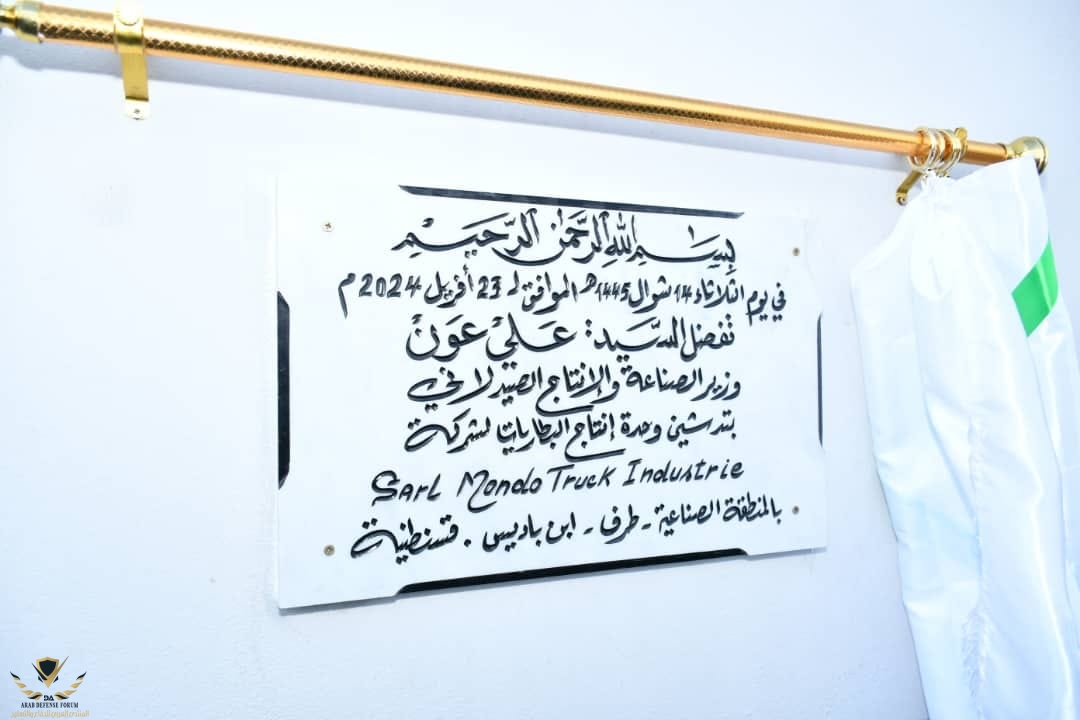 بِسْمِ اللهِ الرَّحْمٰنِ الرَّحِيْمِ
في يوم الثلاثاء 14 شوال 1445هـ الموافق لـ 23 أفريل 2024 م
تفضل السَّيد: عَلي عَونْ
وزير الصناعة والإنتاج الصيدلاني
بتدشين وحدة إنتاج البطاريات لشركة
SARL Mondo Truck Industrie
بالمنطقة الصناعية - طرف - ابن باديس . قسنطينة
ARAB DEFENSE FORUM